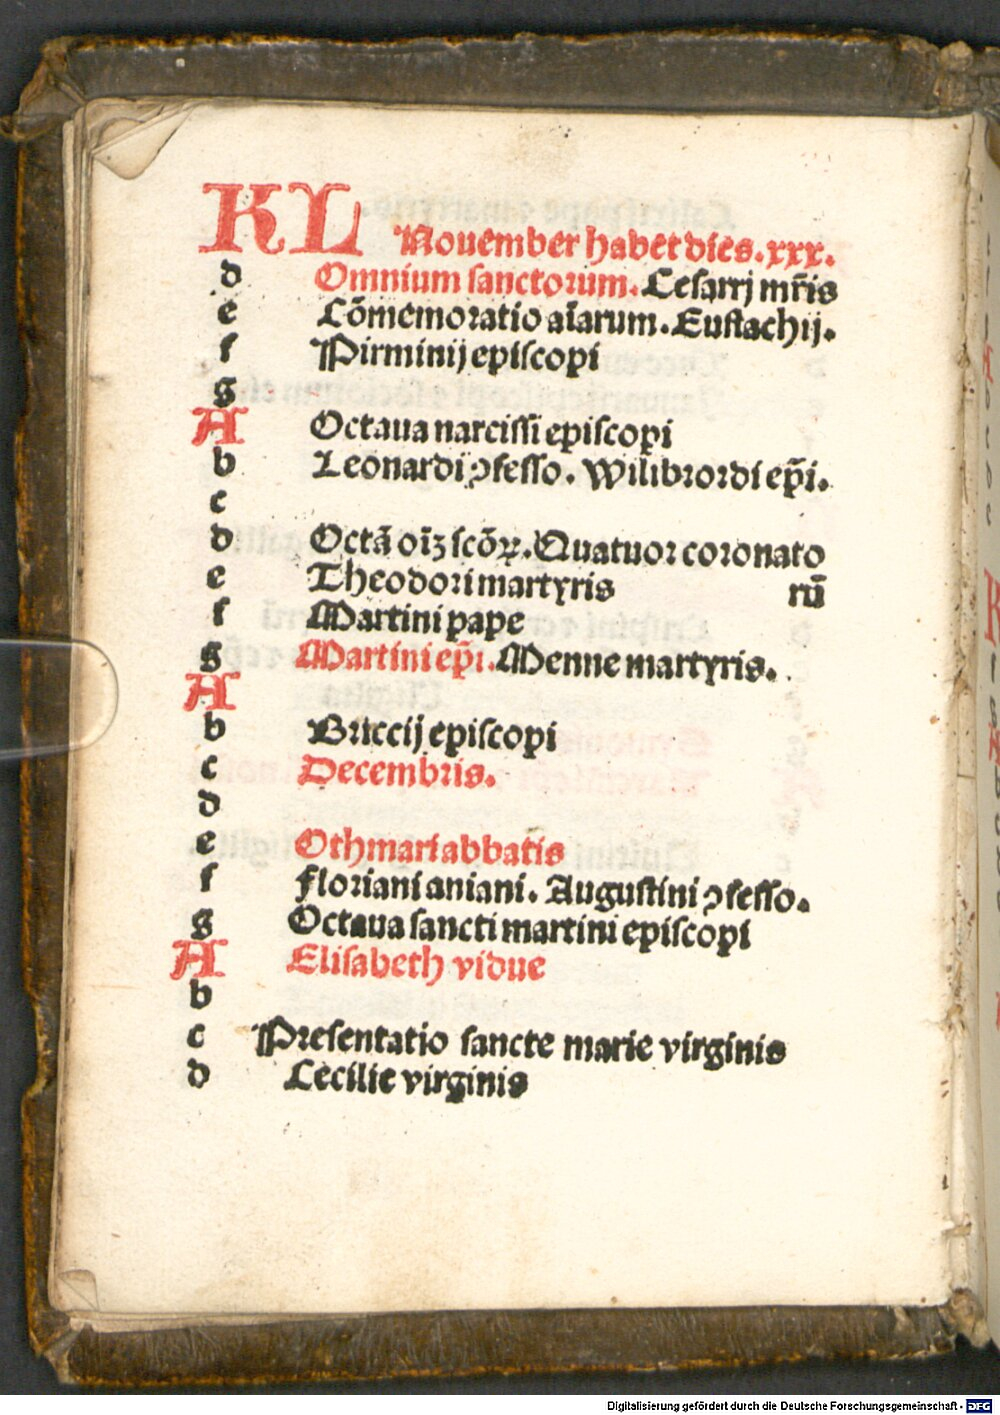 KL November habet dies.xxx.
d Omnium sanctorum. Cesarij mr̄is
e Cōmemoratio aīarum. Eustachij.
f Pirminij episcopi
g
A Octaua narcissi episcopi
b Leonardi ꝯfesso. Wilibrordi ep̄i.
c
d Octā oīʒ scōꝝ. Quatuor coronato
e Theodori martyris rū
f Martini pape
g Martini ep̄i. Menne martyris.
A
b Briccij episcopi
c Decembris.
d
e Othmari abbatis
f Floriani aniani. Augustini ꝯfesso.
g Octaua sancti martini episcopi
A Elisabeth vidue
b
c Presentatio sancte marie virginis
d Cecilie virginis
Digitalisierung gefördert durch die Deutsche Forschungsgemeinschaft - DFG